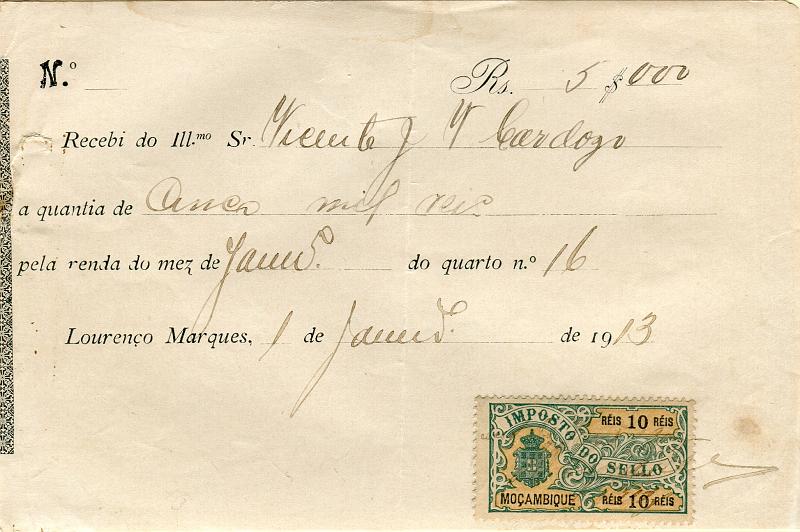 N.º Rs. 5 $000
Recebi do Ill.mo Sr. Vicente J V Cardozo
a quantia de Cinco mil reis
pela renda do mez de Janrº. do quarto n.º 16
Lourenço Marques, 1 de Janrº. de 1913
IMPOSTO DO SELLO
RÉIS 10 RÉIS
MOÇAMBIQUE RÉIS 10 RÉIS